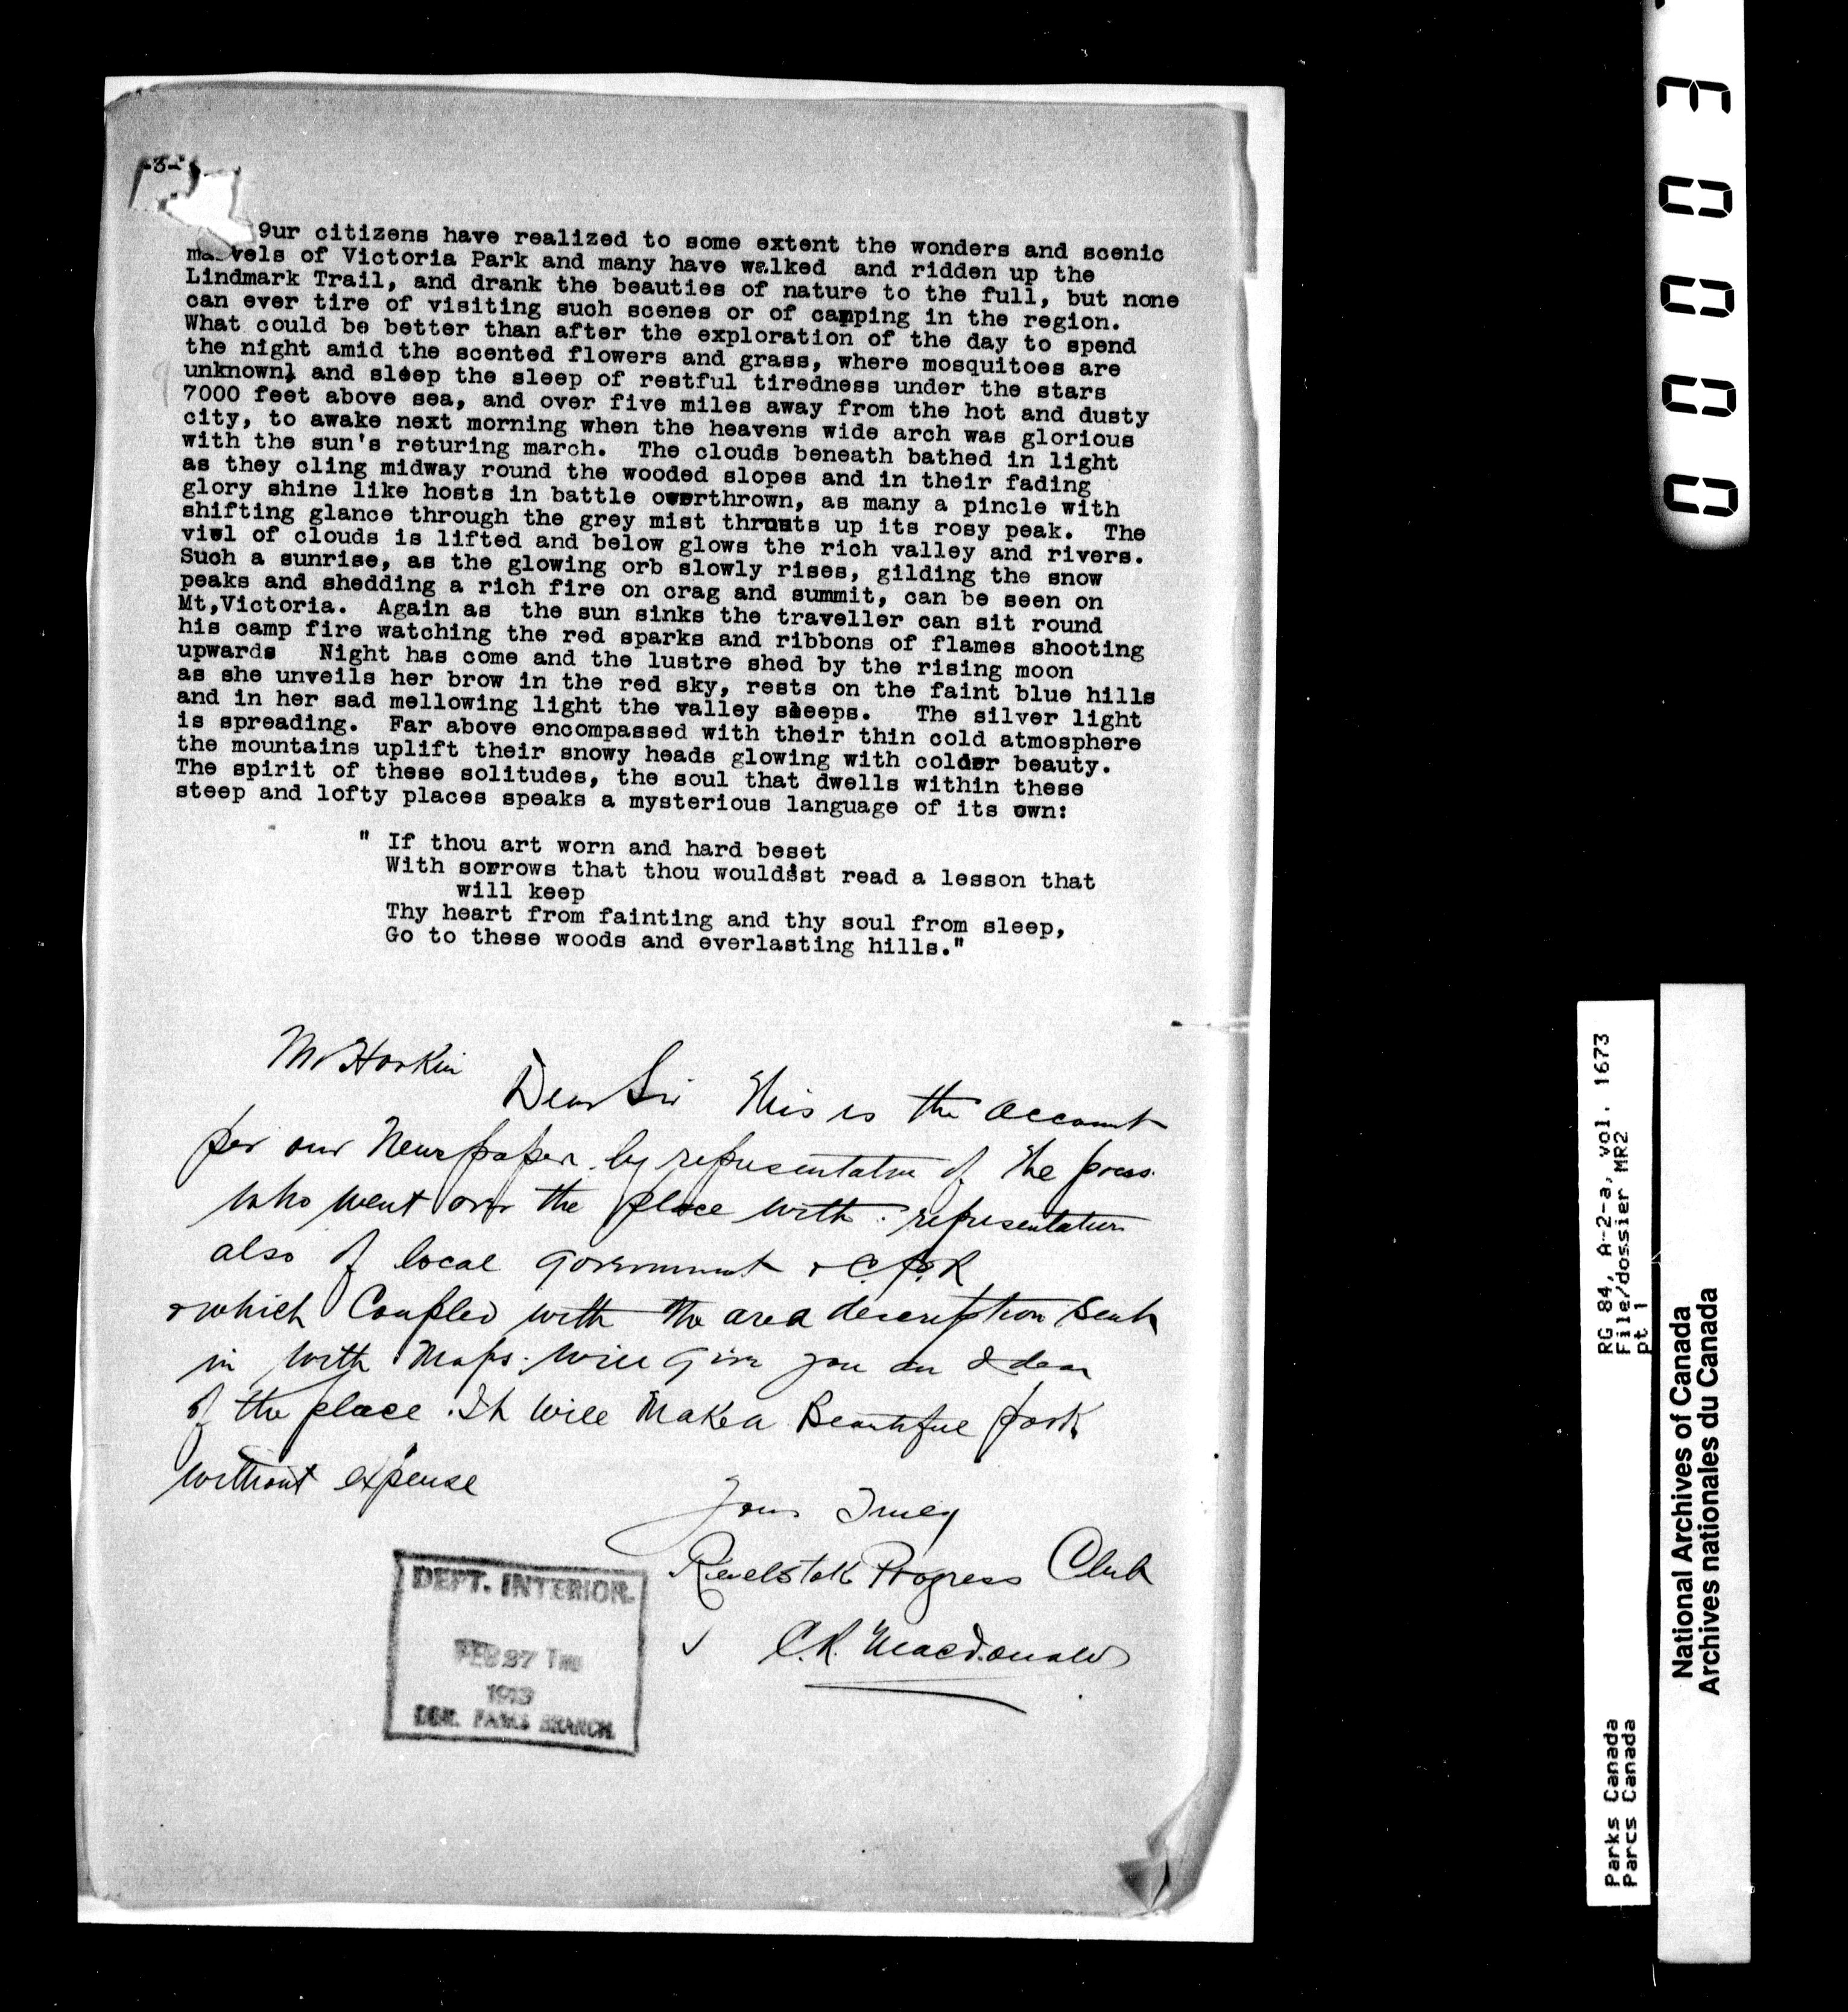 -3-
9ur citizens have realized to some extent the wonders and scenic
marvels of Victoria Park and many have walked and ridden up the
Lindmark Trail, and drank the beauties of nature to the full, but none
can ever tire of visiting such scenes or of camping in the region.
What could be better than after the exploration of the day to spend
the night amid the scented flowers and grass, where mosquitoes are
unknown, and sleep the sleep of restful tiredness under the stars
7000 feet above sea, and over five miles away from the hot and dusty
city, to awake next morning when the heavens wide arch was glorious
with the sun's returing march. The clouds beneath bathed in light
as they cling midway round the wooded slopes and in their fading
glory shine like hosts in battle overthrown, as many a pincle with
shifting glance through the grey mist thrusts up its rosy peak. The
viel of clouds is lifted and below glows the rich valley and rivers.
Such a sunrise, as the glowing orb slowly rises, gilding the snow
peaks and shedding a rich fire on crag and summit, can be seen on
Mt,Victoria. Again as the sun sinks the traveller can sit round
his camp fire watching the red sparks and ribbons of flames shooting
upwards Night has come and the lustre shed by the rising moon
as she unveils her brow in the red sky, rests on the faint blue hills
and in her sad mellowing light the valley sleeps. The silver light
is spreading. Far above encompassed with their thin cold atmosphere
the mountains uplift their snowy heads glowing with colder beauty.
The spirit of these solitudes, the soul that dwells within these
steep and lofty places speaks a mysterious language of its own:
" If thou art worn and hard beset
With sorrows that thou wouldst read a lesson that
will keep
Thy heart from fainting and thy soul from sleep,
Go to these woods and everlasting hills."
Mr Harkin
Dear Sir This is the account
per our Newspaper by representative of the press
who went over the place with representatives
also of local government & C.P.R
& which Coupled with the area description sent
in with Maps will give you an Idea
of the place. It will Make a Beautiful park
without expense
Yours Truly
Revelstoke Progress Club
C.R. Macdonald
DEPT. INTERIOR.
FEB 27 THU
1913
DOM. PARKS BRANCH.
0000 3
RG 84, A-2-a, vol. 1673
File/dossier MR2
pt 1
Parks Canada
Parcs Canada
National Archives of Canada
Archives nationales du Canada